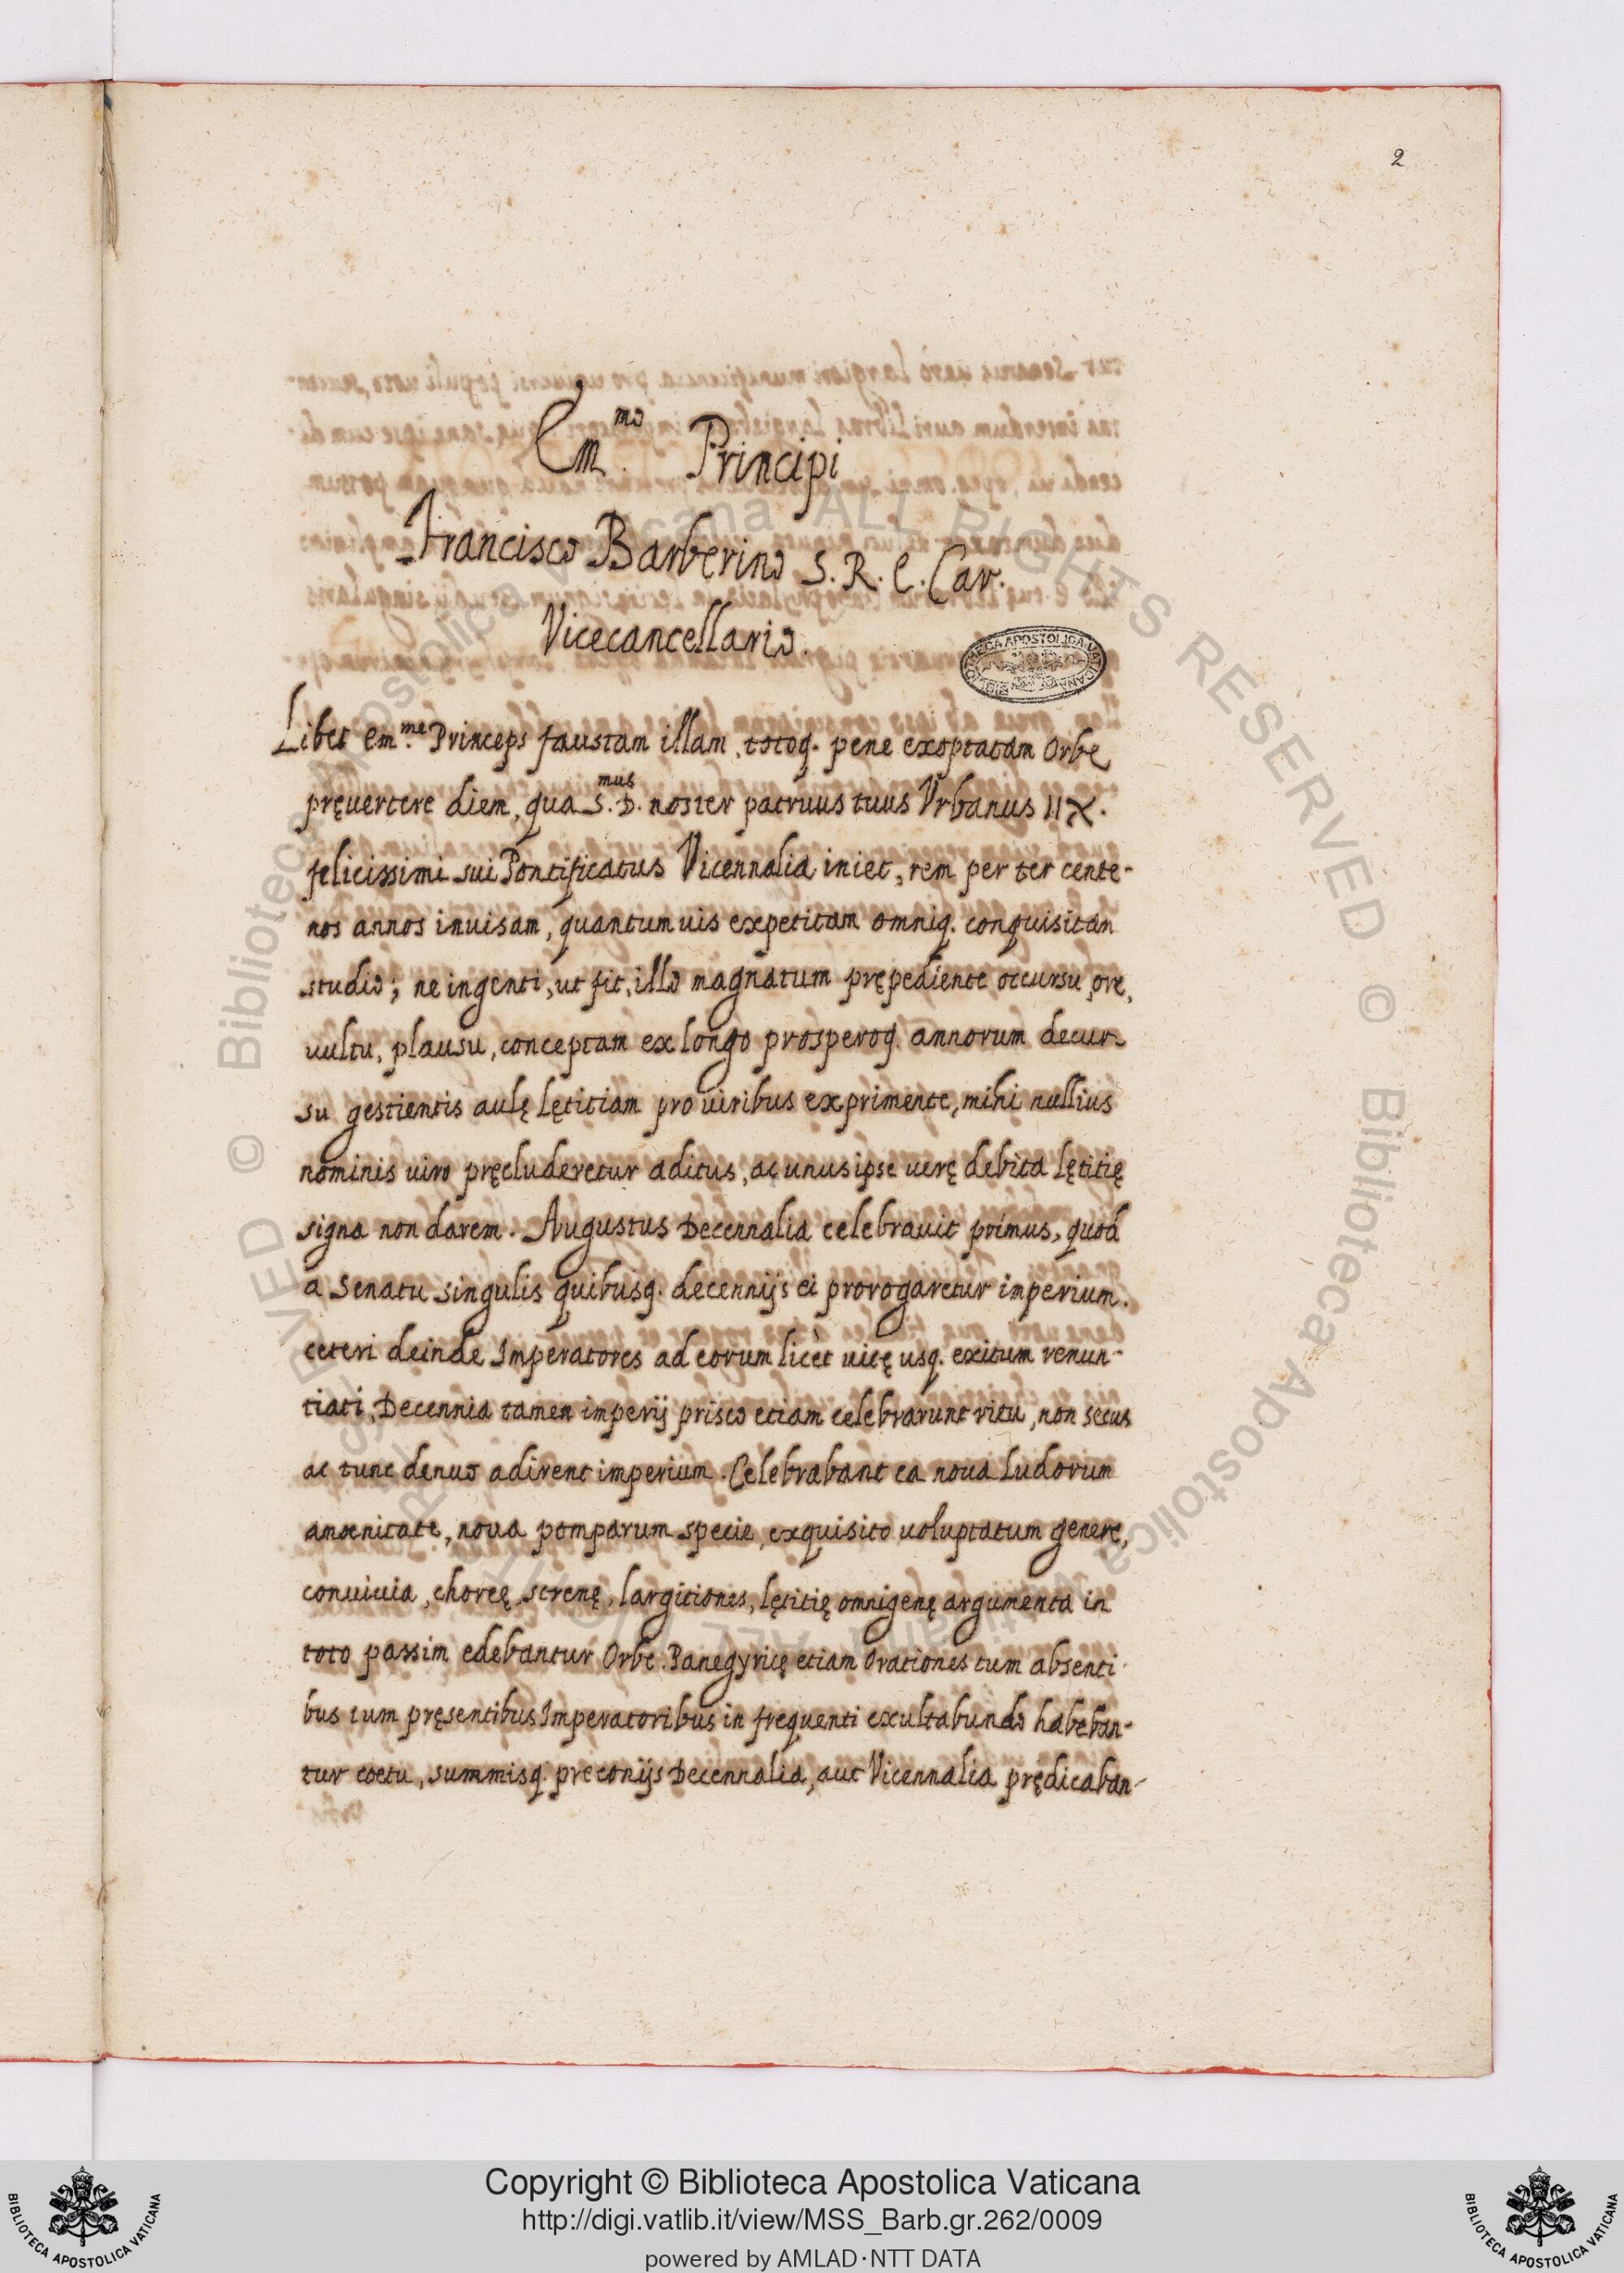 2
Em.mo Principi
Francisco Barberino S. R. E. Car.
Vicecancellario.
Libet em.me Princeps faustam illam, totoq. pene exoptatam Orbe
pręuertere diem, qua S.mus D. noster patruus tuus Vrbanus IIX.
felicissimi sui Pontificatus Vicennalia iniet, rem per ter cente-
nos annos inuisam, quantumuis expetitam omniq. conquisitan
studio; ne ingenti, ut fit, illo magnatum prępediente occursu, ore,
uultu, plausu, conceptam ex longo prosperoq. annorum decur-
su gestientis aulę lętitiam pro uiribus exprimente, mihi nullius
nominis uiro pręcluderetur aditus, ac unus ipse uerę debita lętitię
signa non darem. Augustus Decennalia celebrauit primus, quòd
a Senatu singulis quibusq. decennijs ei prorogaretur imperium.
ceteri deinde Imperatores ad eorum licèt uitę usq. exitum renun-
tiati, Decennia tamen imperij prisco etiam celebrarunt ritu, non secus
ac tunc denuo adirent imperium. Celebrabant ea noua Ludorum
amoenitate, noua pomparum specie, exquisito uoluptatum genere,
conuiuia, choreę, strenę, largitiones, lętitię omnigenę argumenta in
toto passim edebantur Orbe. Panegyricę etiam Orationes tum absenti-
bus tum pręsentibus Imperatoribus in frequenti exultabundo habeban-
tur coetu, summisq. preconijs Decennalia, aut Vicennalia prędicaban-
Copyright © Biblioteca Apostolica Vaticana
http://digi.vatlib.it/view/MSS_Barb.gr.262/0009
powered by AMLAD·NTT DATA
BIBLIOTECA APOSTOLICA VATICANA
BIBLIOTECA APOSTOLICA VATICANA